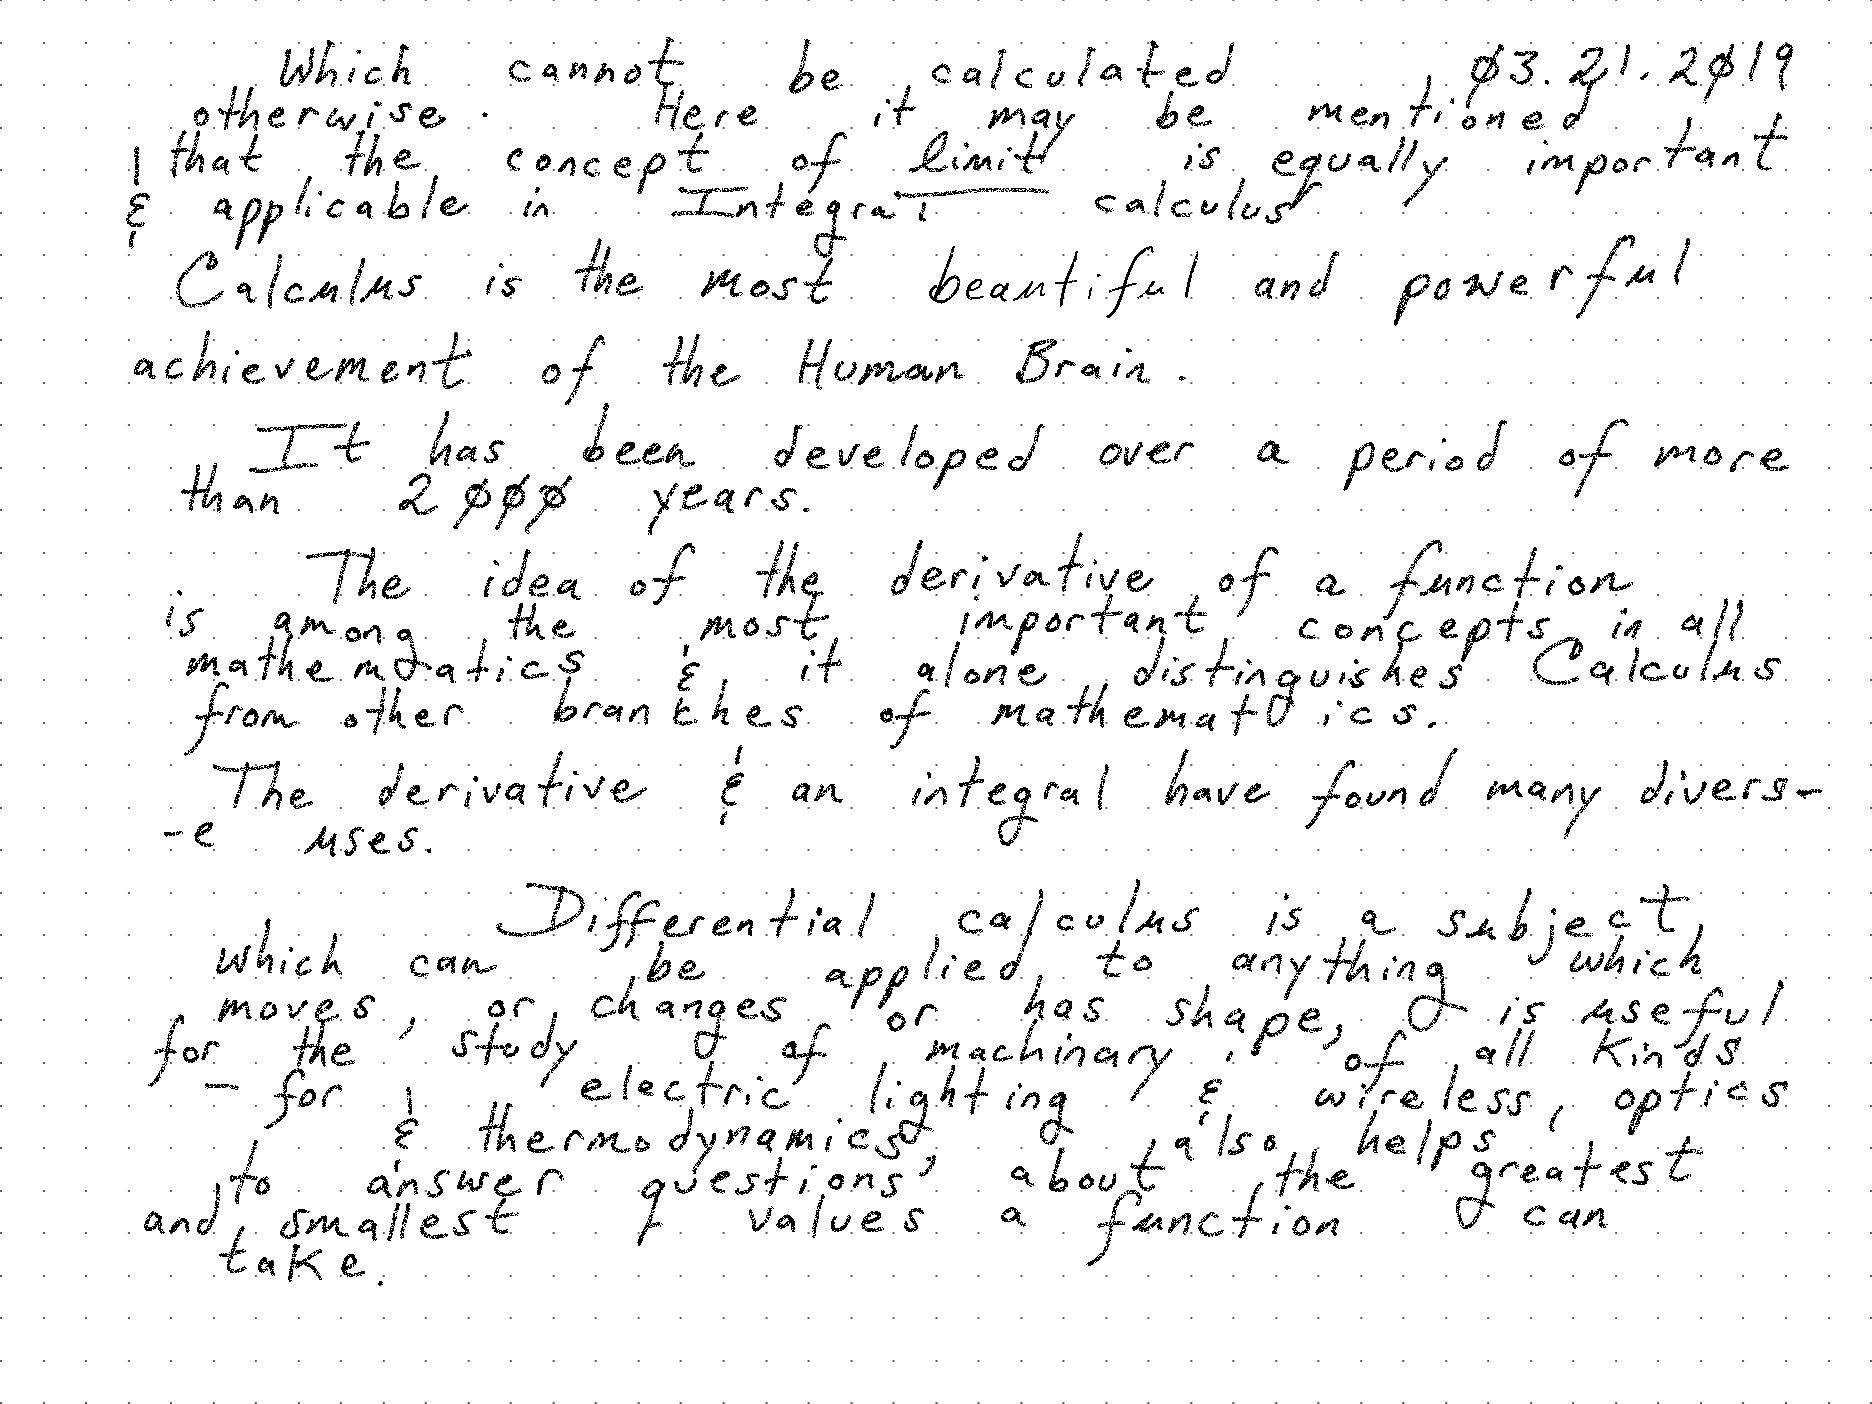 Which cannot be calculated 03.21.2019
otherwise. Here it may be mentioned
that the concept of limit is equally important
& applicable in Integral calculus
Calculus is the most beautiful and powerful
achievement of the Human Brain.
It has been developed over a period of more
than 2000 years.
The idea of the derivative of a function
is among the most important concepts in all
mathematics & it alone distinguishes Calculus
from other branches of mathematics.
The derivative & an integral have found many divers-
-e uses.
Differential calculus is a subject
which can be applied to anything which
moves, or changes or has shape, is useful
for the study of machinary of all kinds
- for electric lighting & wireless, optics
& thermodynamics, also helps
to answer questions about the greatest
and smallest values a function can
take.